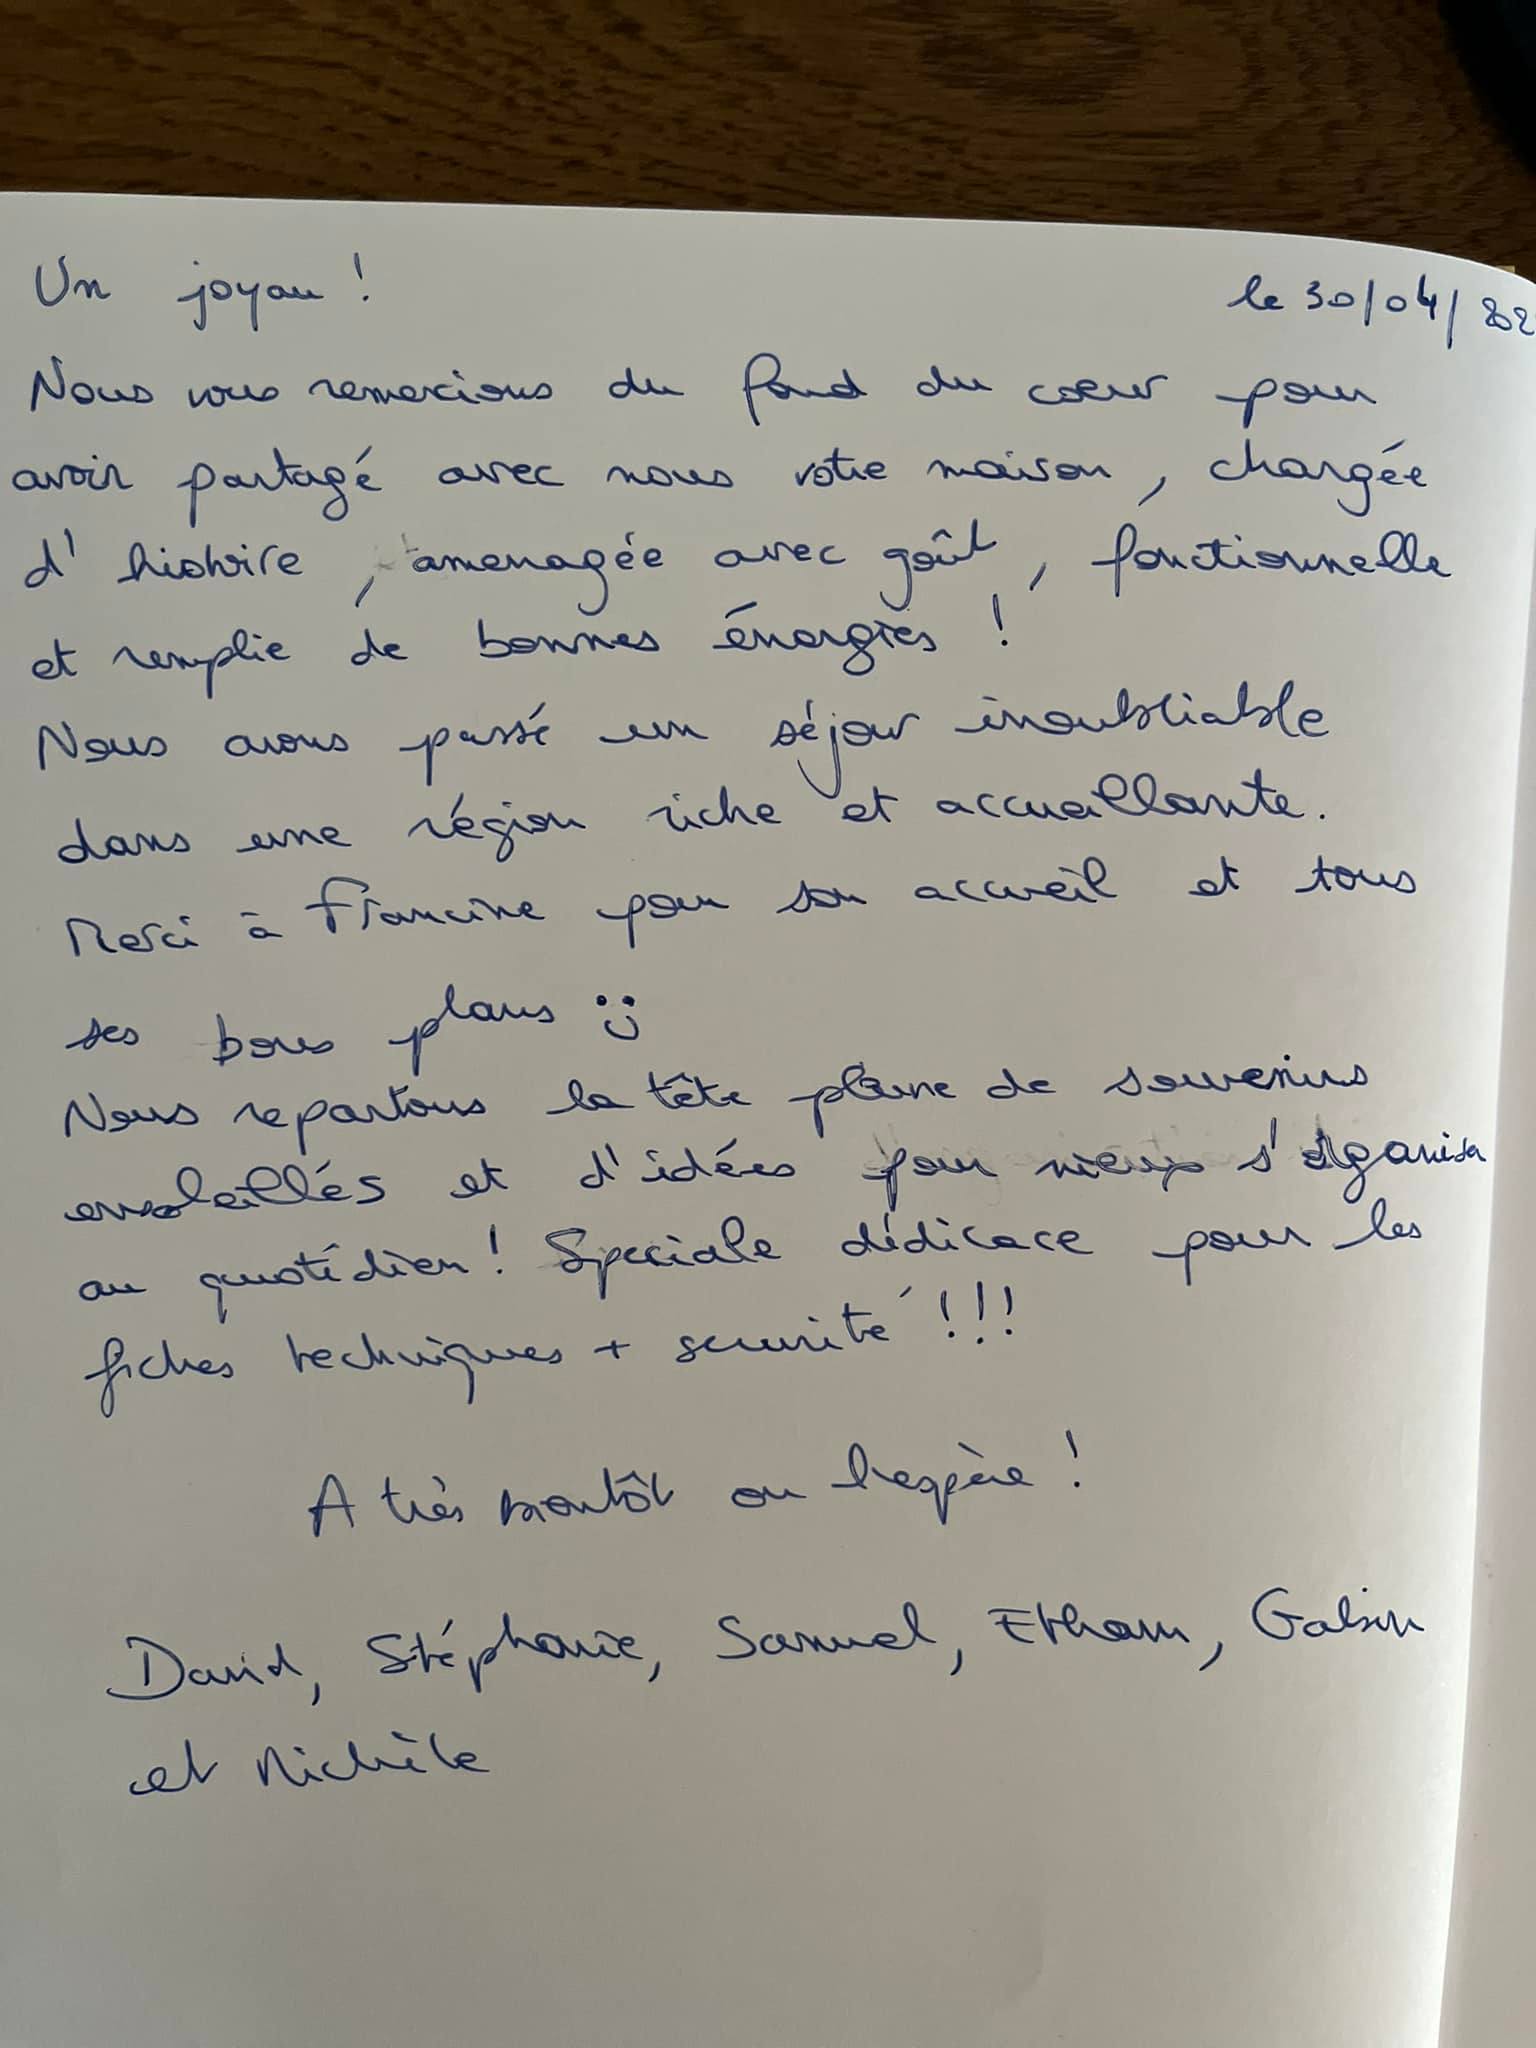 Un joyau !
le 30/04/202
Nous vous remercions du fond du coeur pour
avoir partagé avec nous votre maison, chargée
d'histoire, amenagée avec goût, fonctionnelle
et remplie de bonnes énergies !
Nous avons passé un séjour inoubliable
dans une région riche et accueillante.
Merci à Francine pour son accueil et tous
ses bons plans :)
Nous repartons la tête pleine de souvenirs
ensoleillés et d'idées pour mieux s'organiser
au quotidien ! Speciale dédicace pour les
fiches techniques + securité !!!
A très bientôt on l'espère !
David, Stéphanie, Samuel, Ethan, Gabin
et Michèle